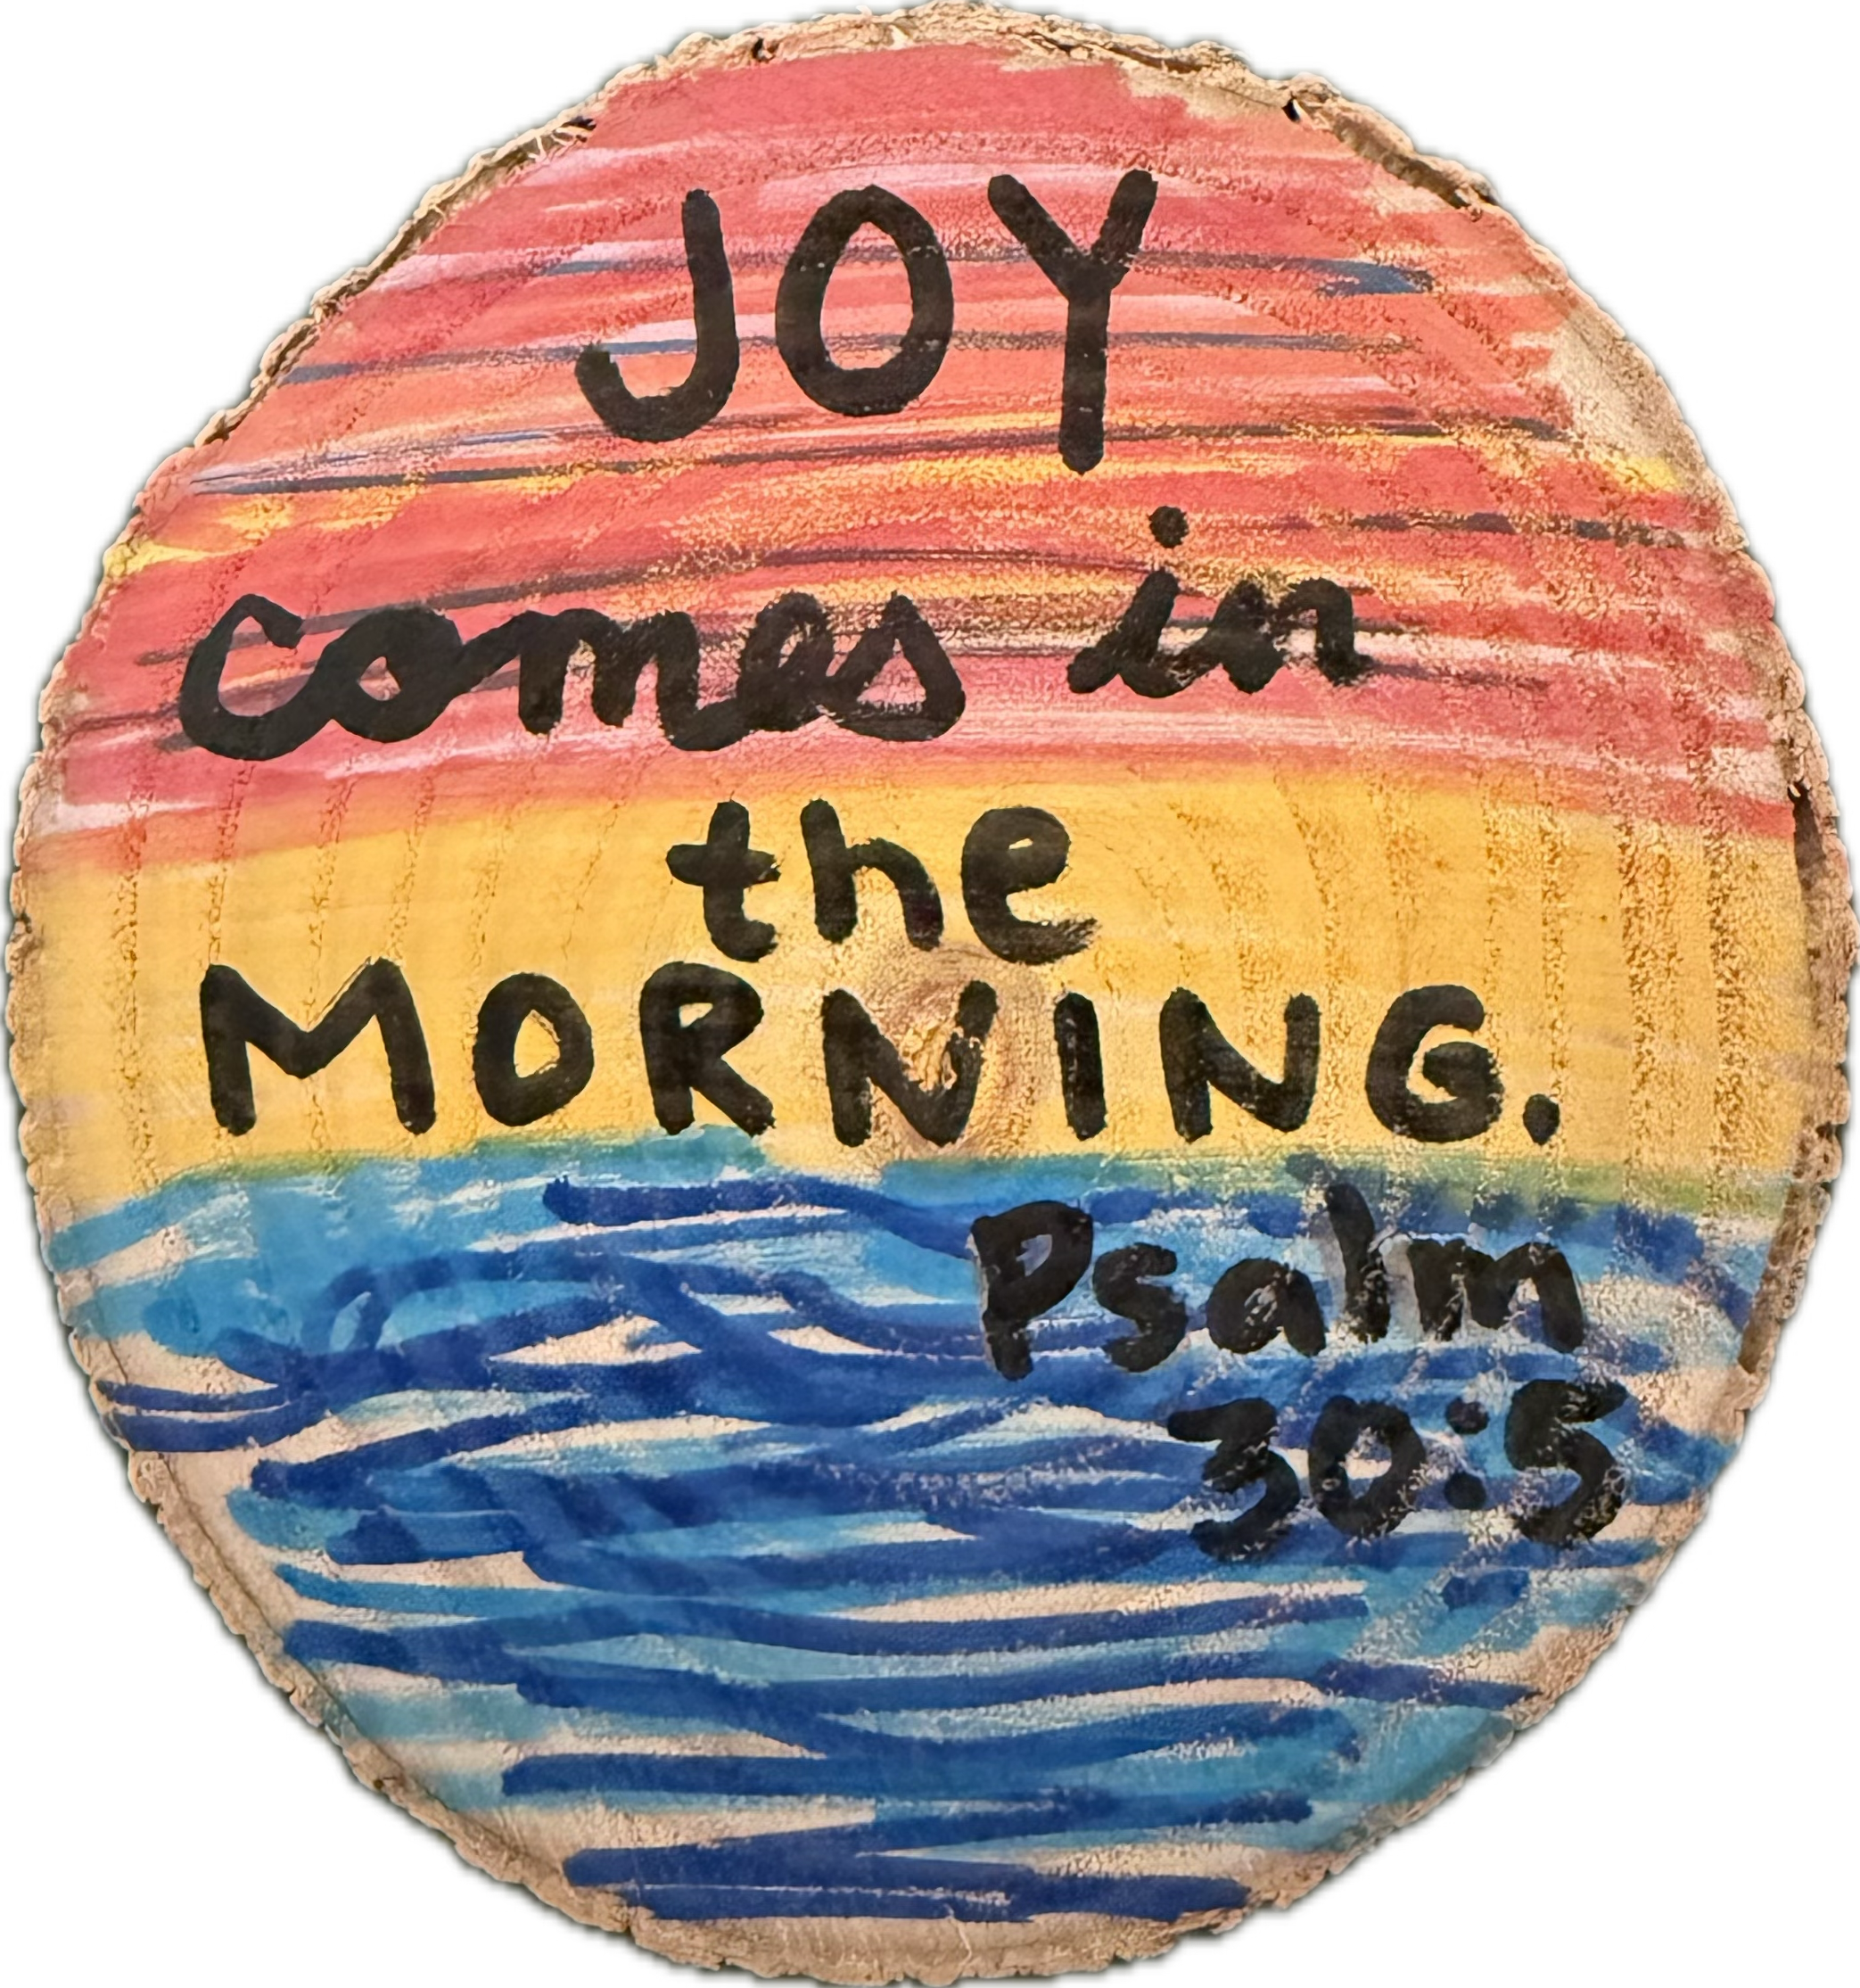 JOY
comes in
the
MORNING.
Psalm
30:5